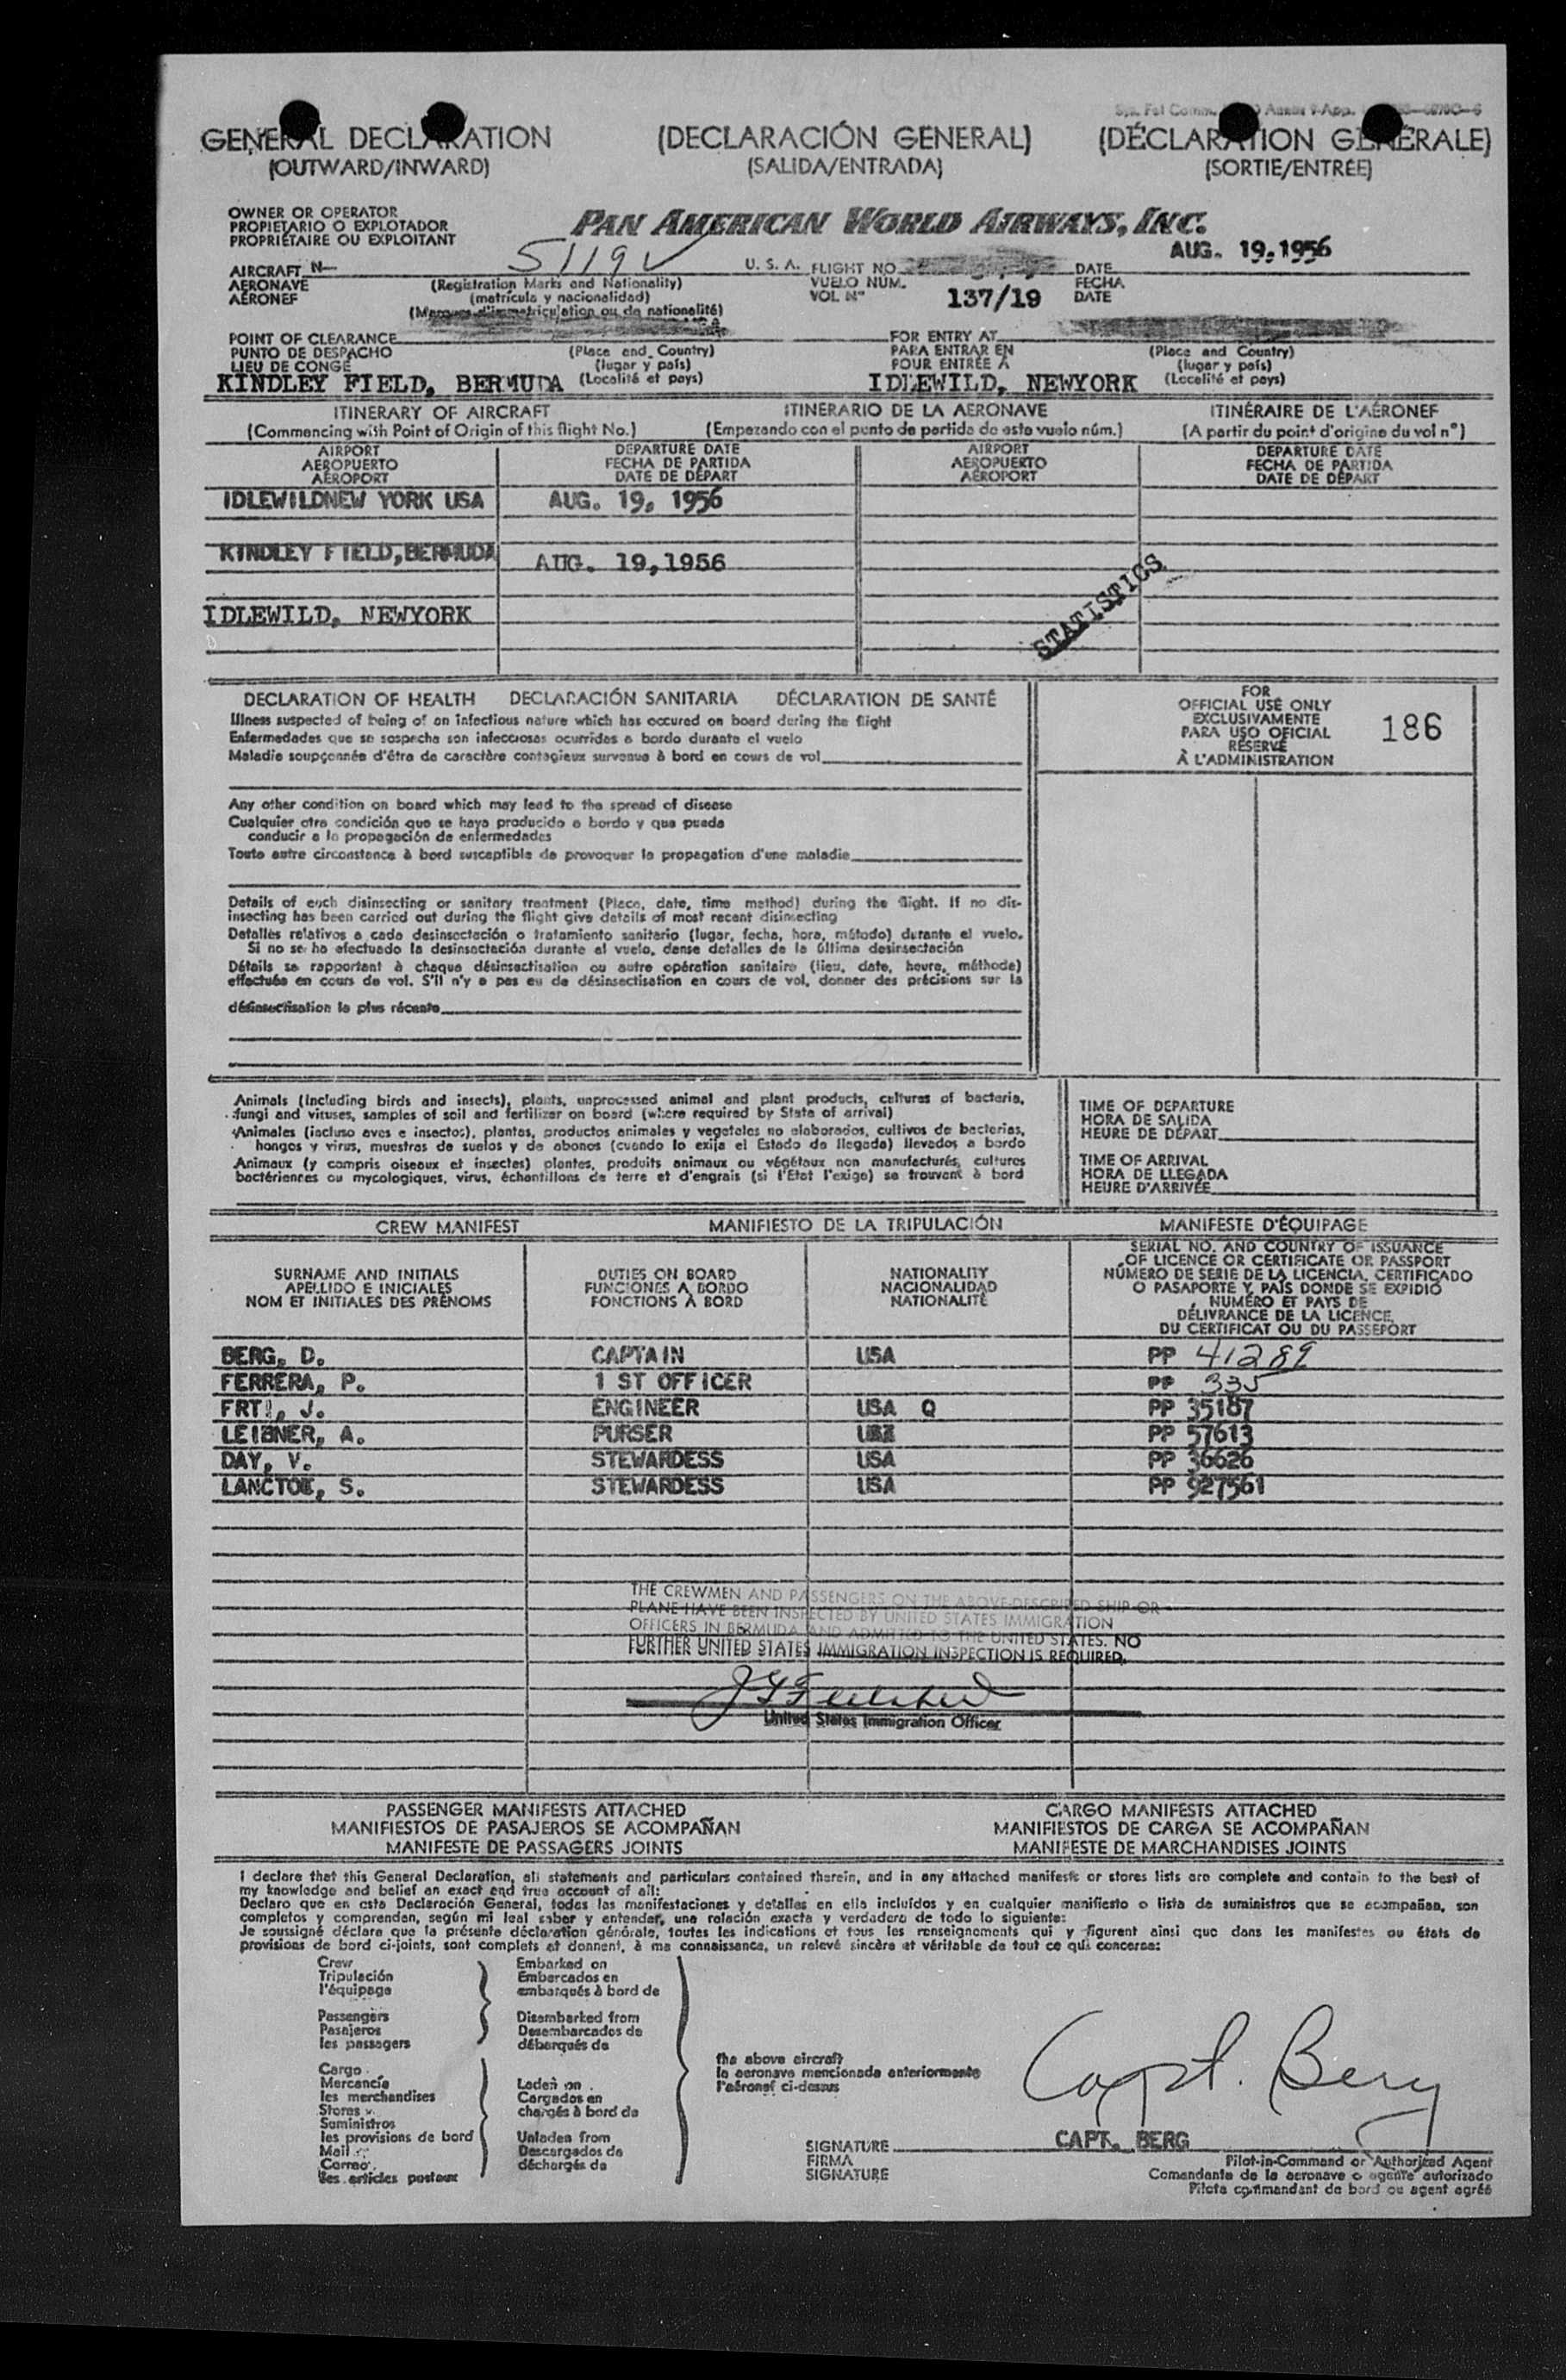 GENERAL DECLARATION (DECLARACIÓN GENERAL) (DÉCLARATION GÉNÉRALE)
(OUTWARD/INWARD) (SALIDA/ENTRADA) (SORTIE/ENTRÉE)
OWNER OR OPERATOR
PROPIETARIO O EXPLOTADOR
PROPRIÉTAIRE OU EXPLOITANT
PAN AMERICAN WORLD AIRWAYS, INC.
AIRCRAFT N- 5119V U. S. A. FLIGHT NO. DATE AUG. 19,1956
AERONAVE (Registration Marks and Nationality) VUELO NUM. FECHA
AÉRONEF (matrícula y nacionalidad) VOL Nº 137/19 DATE
(Marques d'immatriculation ou de nationalité)
POINT OF CLEARANCE FOR ENTRY AT
PUNTO DE DESPACHO (Place and Country) PARA ENTRAR EN (Place and Country)
LIEU DE CONGÉ (lugar y país) POUR ENTRÉE A (lugar y país)
KINDLEY FIELD, BERMUDA (Localité et pays) IDLEWILD, NEWYORK (Localité et pays)
ITINERARY OF AIRCRAFT ITINERARIO DE LA AERONAVE ITINÉRAIRE DE L'AÉRONEF
(Commencing with Point of Origin of this flight No.) (Empezando con el punto de partida de este vuelo núm.) (A partir du point d'origine du vol nº)
AIRPORT DEPARTURE DATE AIRPORT DEPARTURE DATE
AEROPUERTO FECHA DE PARTIDA AEROPUERTO FECHA DE PARTIDA
AÉROPORT DATE DE DÉPART AÉROPORT DATE DE DÉPART
IDLEWILDNEW YORK USA AUG. 19, 1956
KINDLEY FIELD,BERMUDA AUG. 19,1956
STATISTICS
IDLEWILD, NEWYORK
DECLARATION OF HEALTH DECLARACIÓN SANITARIA DÉCLARATION DE SANTÉ
Illness suspected of being of an infectious nature which has occured on board during the flight
Enfermedades que se sospecha son infecciosas ocurridas a bordo durante el vuelo
Maladie soupçonnée d'être de caractère contagieux survenue à bord en cours de vol
FOR
OFFICIAL USE ONLY
EXCLUSIVAMENTE
PARA USO OFICIAL
RÉSERVÉ
À L'ADMINISTRATION
186
Any other condition on board which may lead to the spread of disease
Cualquier otra condición que se haya producido a bordo y que pueda
conducir a la propagación de enfermedades
Toute autre circonstance à bord susceptible de provoquer la propagation d'une maladie
Details of each disinsecting or sanitary treatment (Place, date, time method) during the flight. If no dis-
insecting has been carried out during the flight give details of most recent disinsecting
Detalles relativos a cada desinsectación o tratamiento sanitario (lugar, fecha, hora, método) durante el vuelo.
Si no se ha efectuado la desinsectación durante el vuelo, danse detalles de la última desinsectación
Détails se rapportant à chaque désinsectisation ou autre opération sanitaire (lieu, date, heure, méthode)
effectuée en cours de vol. S'il n'y a pas eu de désinsectisation en cours de vol, donner des précisions sur la
désinsectisation la plus récente
Animals (Including birds and insects), plants, unprocessed animal and plant products, cultures of bacteria,
fungi and viruses, samples of soil and fertilizer on board (where required by State of arrival)
Animales (incluso aves e insectos), plantas, productos animales y vegetales no elaborados, cultivos de bacterias,
hongos y virus, muestras de suelos y de abonos (cuando lo exija el Estado de llegada) llevados a bordo
Animaux (y compris oiseaux et insectes) plantes, produits animaux ou végétaux non manufacturés, cultures
bactériennes ou mycologiques, virus, échantillons de terre et d'engrais (si l'Etat l'exige) se trouvent à bord
TIME OF DEPARTURE
HORA DE SALIDA
HEURE DE DÉPART
TIME OF ARRIVAL
HORA DE LLEGADA
HEURE D'ARRIVÉE
CREW MANIFEST MANIFIESTO DE LA TRIPULACIÓN MANIFESTE D'ÉQUIPAGE
SURNAME AND INITIALS
APELLIDO E INICIALES
NOM ET INITIALES DES PRÉNOMS
DUTIES ON BOARD
FUNCIONES A BORDO
FONCTIONS À BORD
NATIONALITY
NACIONALIDAD
NATIONALITÉ
SERIAL NO. AND COUNTRY OF ISSUANCE
OF LICENCE OR CERTIFICATE OR PASSPORT
NÚMERO DE SERIE DE LA LICENCIA, CERTIFICADO
O PASAPORTE Y PAÍS DONDE SE EXPIDIÓ
NUMÉRO ET PAYS DE
DÉLIVRANCE DE LA LICENCE,
DU CERTIFICAT OU DU PASSEPORT
BERG, D. CAPTAIN USA PP 41289
FERRERA, P. 1 ST OFFICER PP 335
J. ENGINEER USA Q PP 35187
LEIBNER, A. PURSER PP 57613
DAY, V. STEWARDESS USA PP 36626
S. STEWARDESS USA PP 927561
THE CREWMEN AND PASSENGERS ON THE ABOVE-DESCRIBED SHIP OR
PLANE HAVE BEEN INSPECTED BY UNITED STATES IMMIGRATION
OFFICERS IN BERMUDA AND ADMITTED TO THE UNITED STATES. NO
FURTHER UNITED STATES IMMIGRATION INSPECTION IS REQUIRED.
United States Immigration Officer
PASSENGER MANIFESTS ATTACHED CARGO MANIFESTS ATTACHED
MANIFIESTOS DE PASAJEROS SE ACOMPAÑAN MANIFIESTOS DE CARGA SE ACOMPAÑAN
MANIFESTE DE PASSAGERS JOINTS MANIFESTE DE MARCHANDISES JOINTS
I declare that this General Declaration, all statements and particulars contained therein, and in any attached manifests or stores lists are complete and contain to the best of
my knowledge and belief an exact and true account of all:
Declaro que en esta Declaración General, todas las manifestaciones y detalles en ella incluídos y en cualquier manifiesto o lista de suministros que se acompañan, son
completos y comprenden, según mi leal saber y entender, una relación exacta y verdadera de todo lo siguiente:
Je soussigné déclare que la présente déclaration générale, toutes les indications et tous les renseignements qui y figurent ainsi que dans les manifestes ou états de
provisions de bord ci-joints, sont complets et donnent, à ma connaissance, un relevé sincère et véritable de tout ce qui concerne:
Crew Embarked on
Tripulación Embarcados en
l'équipage embarqués à bord de
Passengers Disembarked from
Pasajeros Desembarcados de
les passagers débarqués de
the above aircraft
la aeronave mencionada anteriormente
l'aéronef ci-dessus
Cargo
Mercancía Laden on
les merchandises Cargados en
Stores chargés à bord de
Suministros
les provisions de bord Unladen from
Mail Descargados de
Correo déchargés de
les articles postaux
Capt. Berg
SIGNATURE CAPT. BERG
FIRMA Pilot-in-Command or Authorized Agent
SIGNATURE Comandante de la aeronave o agente autorizado
Pilote commandant de bord ou agent agréé